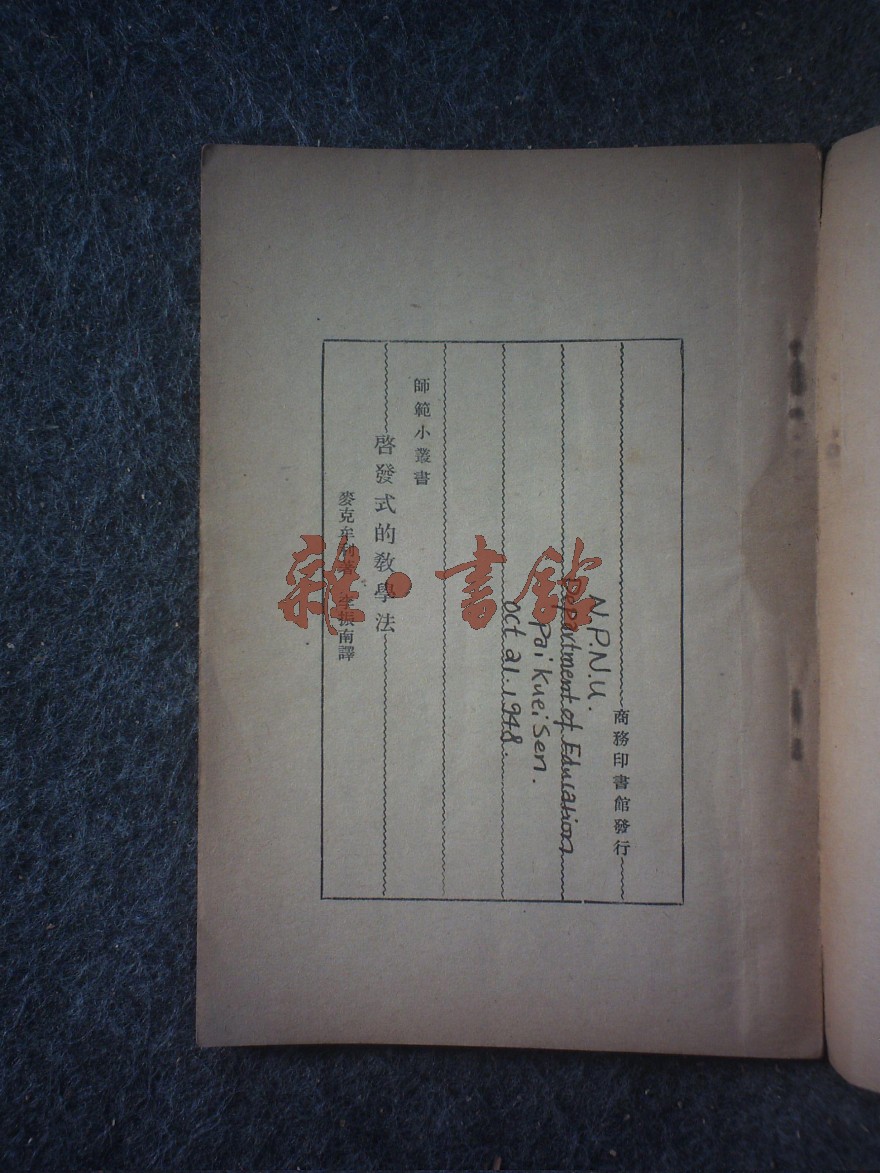 師範小叢書
啓發式的教學法
麥克牟利著 李振南譯
商務印書館發行
N.P.N.U.
Department of Education
Pai Kuei Sen.
Oct 21. 1948.
雜·書館